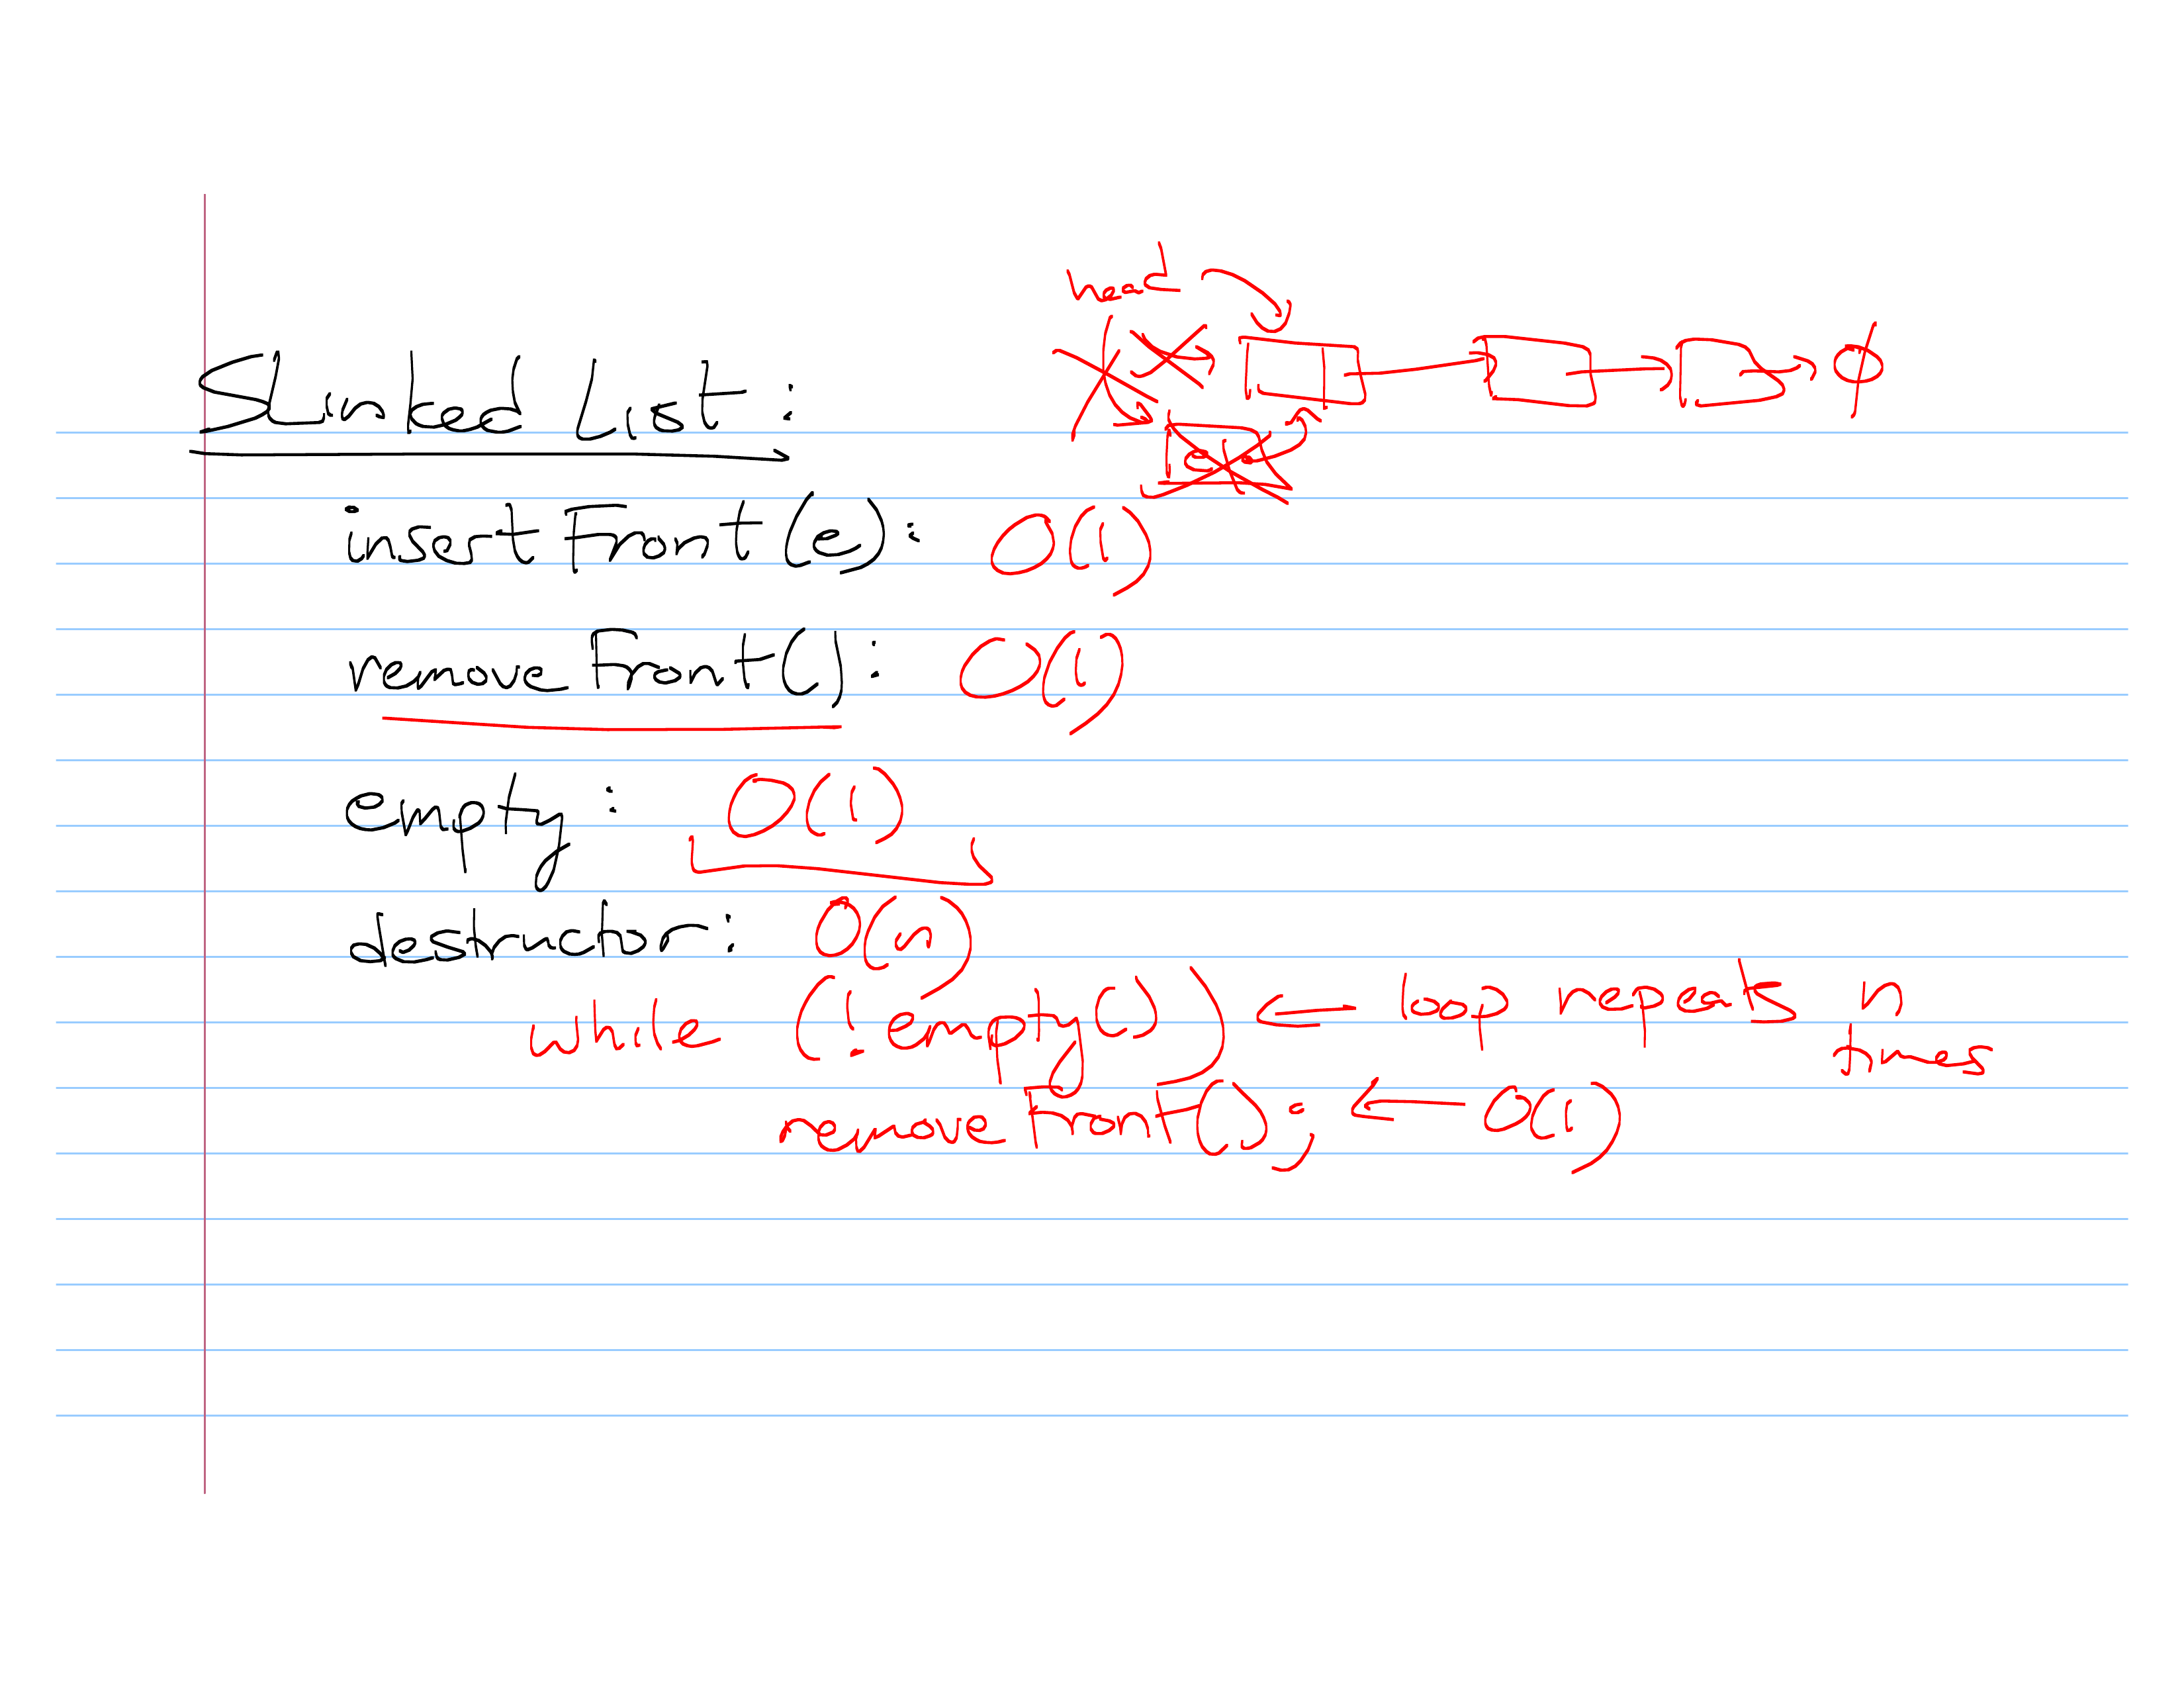 head
SLinked List:
e
ϕ
insertFront(e): O(1)
removeFront(): O(1)
empty: O(1)
destructor: O(n)
while (!empty()) ⇐ loop repeats n times
removeFront(); ← O(1)